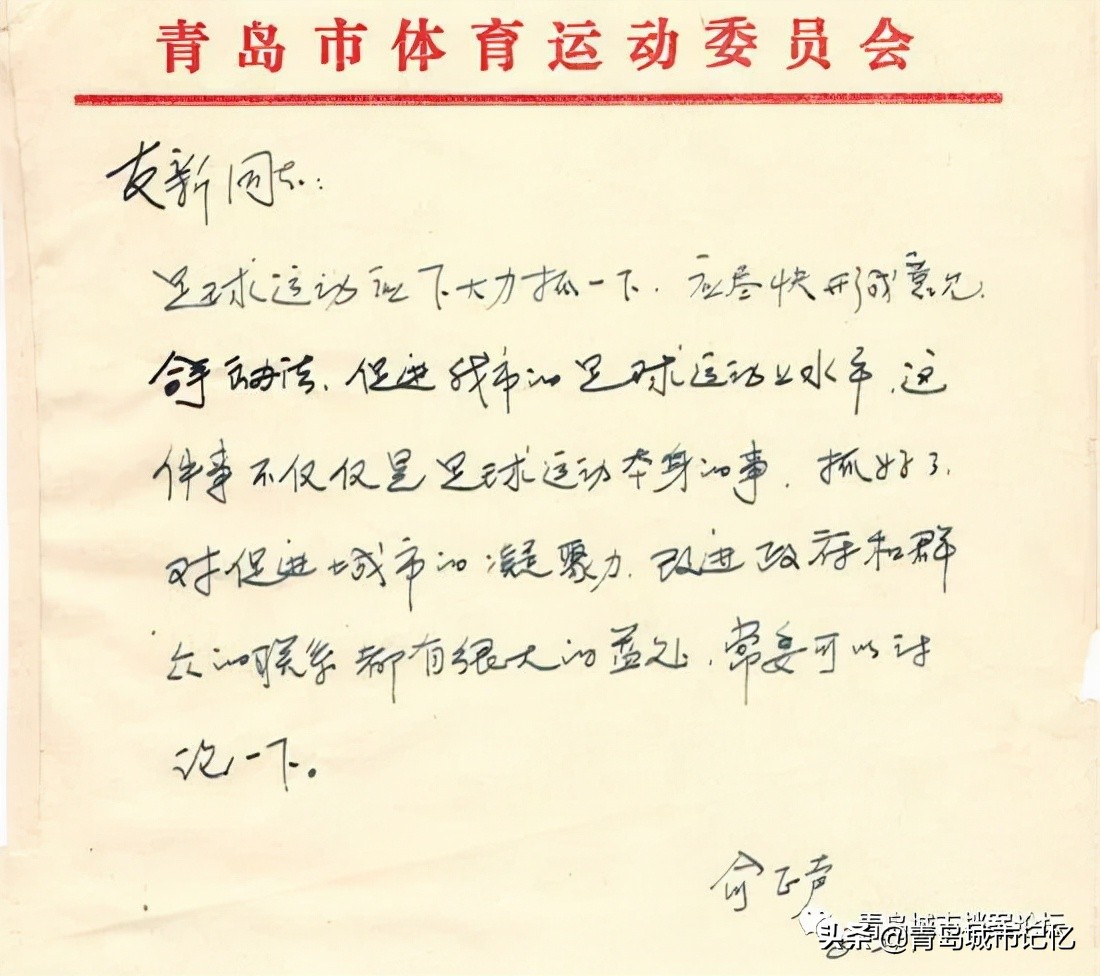 青岛市体育运动委员会
友新同志：
足球运动应下大力抓一下．应尽快形成意见．
办法．促进我市的足球运动上水平．这
件事不仅仅是足球运动本身的事．抓好了．
对促进城市的凝聚力．改进政府和群
众的联系都有很大的益处．常委可以讨
论一下。
俞正声
青岛城市档案论坛
头条@青岛城市记忆